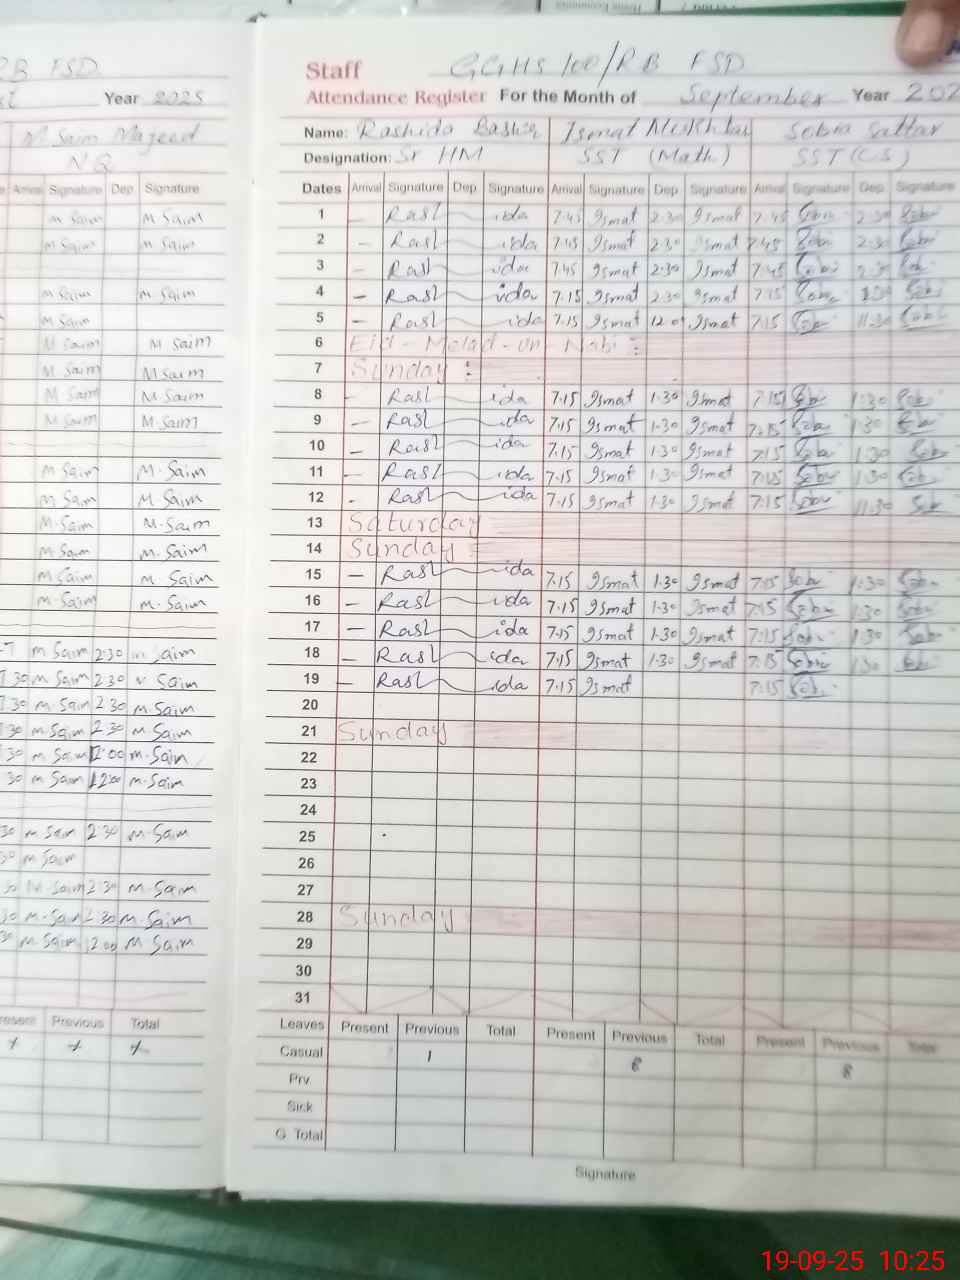 RB FSD
Year 2025
M Saim Majeed
NQ
Arrival Signature Dep Signature
M Saim M Saim
M Saim M Saim
M Saim M Saim
M Saim
M Saim M Saim
M Saim M Saim
M Saim M Saim
M Saim M Saim
M Saim M. Saim
M Saim M Saim
M. Saim M. Saim
M. Saim M. Saim
M Saim M Saim
M Saim M. Saim
M Saim 2:30 m Saim
30 m Saim 2:30 Saim
30 m Saim 2 30 m. Saim
30 m. Saim 2 30 m. Saim
30 m Saim 2:00 m. Saim
30 m Saim 12:00 m. Saim
30 m Saim 2:30 m. Saim
30 m Saim
30 M. Saim 2:30 m. Saim
30 m. Saim 2:30 m. Saim
30 m Saim 12:00 m Saim
Present Previous Total
Staff GGHS 100/RB FSD
Attendance Register For the Month of September Year 202
Name: Rashida Bashir Ismat Mukhtar Sobia Sattar
Designation: Sr HM SST (Math) SST (CS)
Dates Arrival Signature Dep. Signature Arrival Signature Dep. Signature Arrival Signature Dep. Signature
1 – Rashida 7.45 Ismat 2.30 Ismat 7.45 Sobia 2.30 Sobia
2 – Rashida 7.45 Ismat 2.30 Ismat 7.45 Sobia 2.30 Sobia
3 – Rashida 7.45 Ismat 2.30 Ismat 7.45 Sobia 2.30 Sobia
4 – Rashida 7.15 Ismat 2.30 Ismat 7.15 Sobia Sobia
5 – Rashida 7.15 Ismat 12.0 Ismat 7.15 Sobia 11.30 Sobia
6 Eid-Melad-un-Nabi :
7 Sunday :
8 Rashida 7.15 Ismat 1.30 Ismat 7.15 Sobia 1:30 Sobia
9 – Rashida 7.15 Ismat 1.30 Ismat 7.15 Sobia 1:30 Sobia
10 – Rashida 7.15 Ismat 1.30 Ismat 7.15 Sobia 1:30 Sobia
11 – Rashida 7.15 Ismat 1.30 Ismat 7.15 Sobia 1:30 Sobia
12 - Rashida 7.15 Ismat 1.30 Ismat 7.15 Sobia 11.30 Sobia
13 Saturday
14 Sunday
15 – Rashida 7.15 Ismat 1.30 Ismat 7.15 Sobia 1:30 Sobia
16 – Rashida 7.15 Ismat 1.30 Ismat 7.15 Sobia 1:30 Sobia
17 – Rashida 7.15 Ismat 1.30 Ismat 7.15 Sobia 1:30 Sobia
18 – Rashida 7.15 Ismat 1.30 Ismat 7.15 Sobia 1:30 Sobia
19 – Rashida 7.15 Ismat 7.15 Sobia
20
21 Sunday
22
23
24
25
26
27
28 Sunday
29
30
31
Leaves Present Previous Total Present Previous Total Present Previous Total
Casual 1 8 8
Prv.
Sick
G Total
Signature
19-09-25 10:25